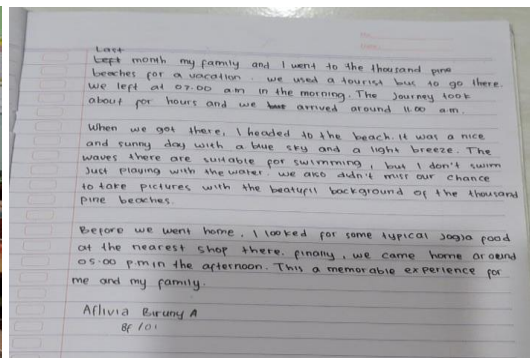 Last
Left month my family and I went to the thousand pine
beaches for a vacation. we used a tourist bus to go there.
we left at 07.00 am in the morning. The Journey took
about for hours and we arrived around 11.00 a.m.
When we got there, I headed to the beach. it was a nice
and sunny day with a blue sky and a light breeze. The
waves there are suitable for swimming, but I don't swim
Just playing with the water. we also didn't miss our chance
to take pictures with the beatufil background of the thousand
pine beaches.
Before we went home, I looked for some typical Jogja food
at the nearest shop there. finally, we came home around
05.00 p.m in the afternoon. This a memorable experience for
me and my family.
Aflivia Biruny A
8F / 01